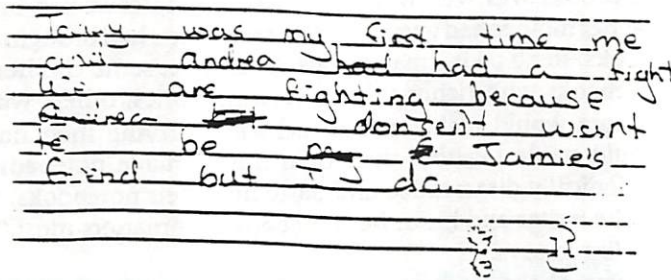 Taixy was my first time me
and Andrea had had a fight
We are fighting because
Andrea but donsen't waint
te be my Jamie's
friend but I do